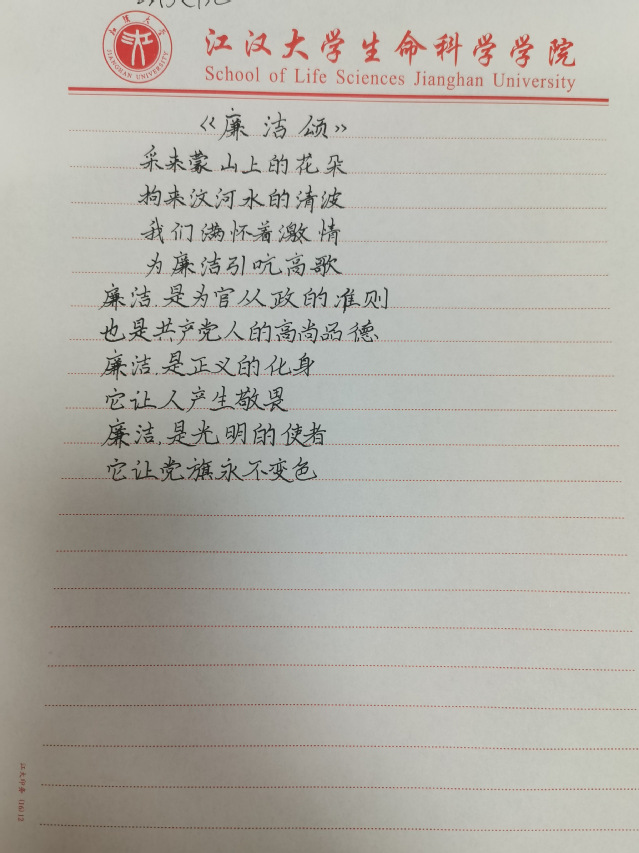 江汉大学
JIANGHAN UNIVERSITY
江汉大学生命科学学院
School of Life Sciences Jianghan University
《廉洁颂》
采来蒙山上的花朵
掬来汶河水的清波
我们满怀着激情
为廉洁引吭高歌
廉洁.是为官从政的准则
也是共产党人的高尚品德
廉洁.是正义的化身
它让人产生敬畏
廉洁.是光明的使者
它让党旗永不变色
江大印务 (16) 12